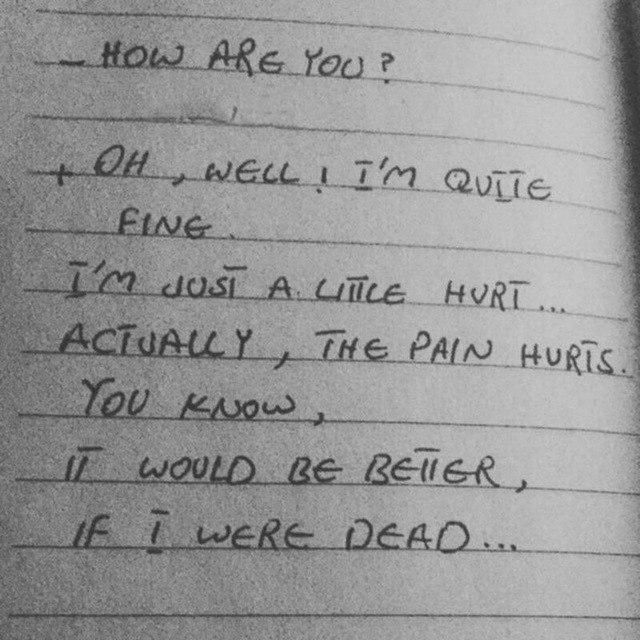 - HOW ARE YOU?
+ OH, WELL! I'M QUITE
FINE.
I'M JUST A LITTLE HURT...
ACTUALLY, THE PAIN HURTS.
YOU KNOW,
IT WOULD BE BETTER,
IF I WERE DEAD...